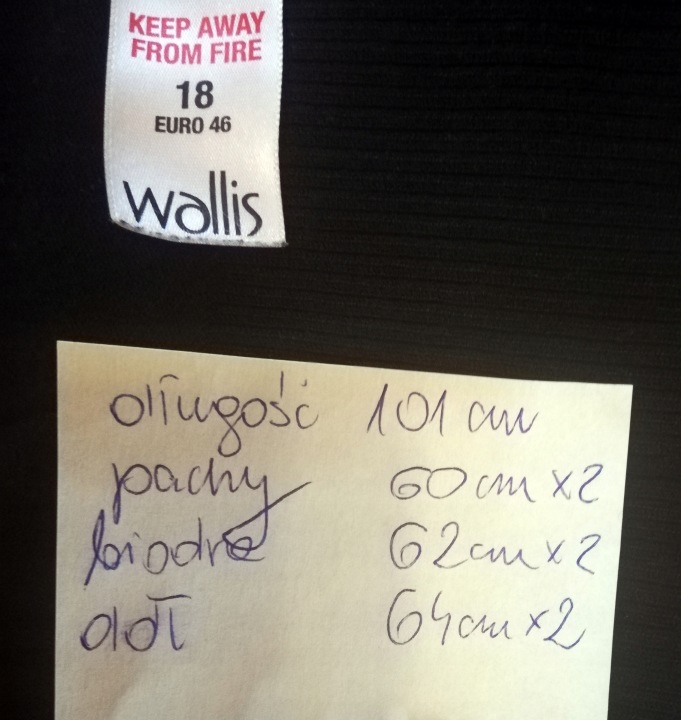 KEEP AWAY
FROM FIRE
18
EURO 46
wallis
długość 101 cm
pachy 60 cm x2
biodra 62 cm x2
dół 64 cm x2